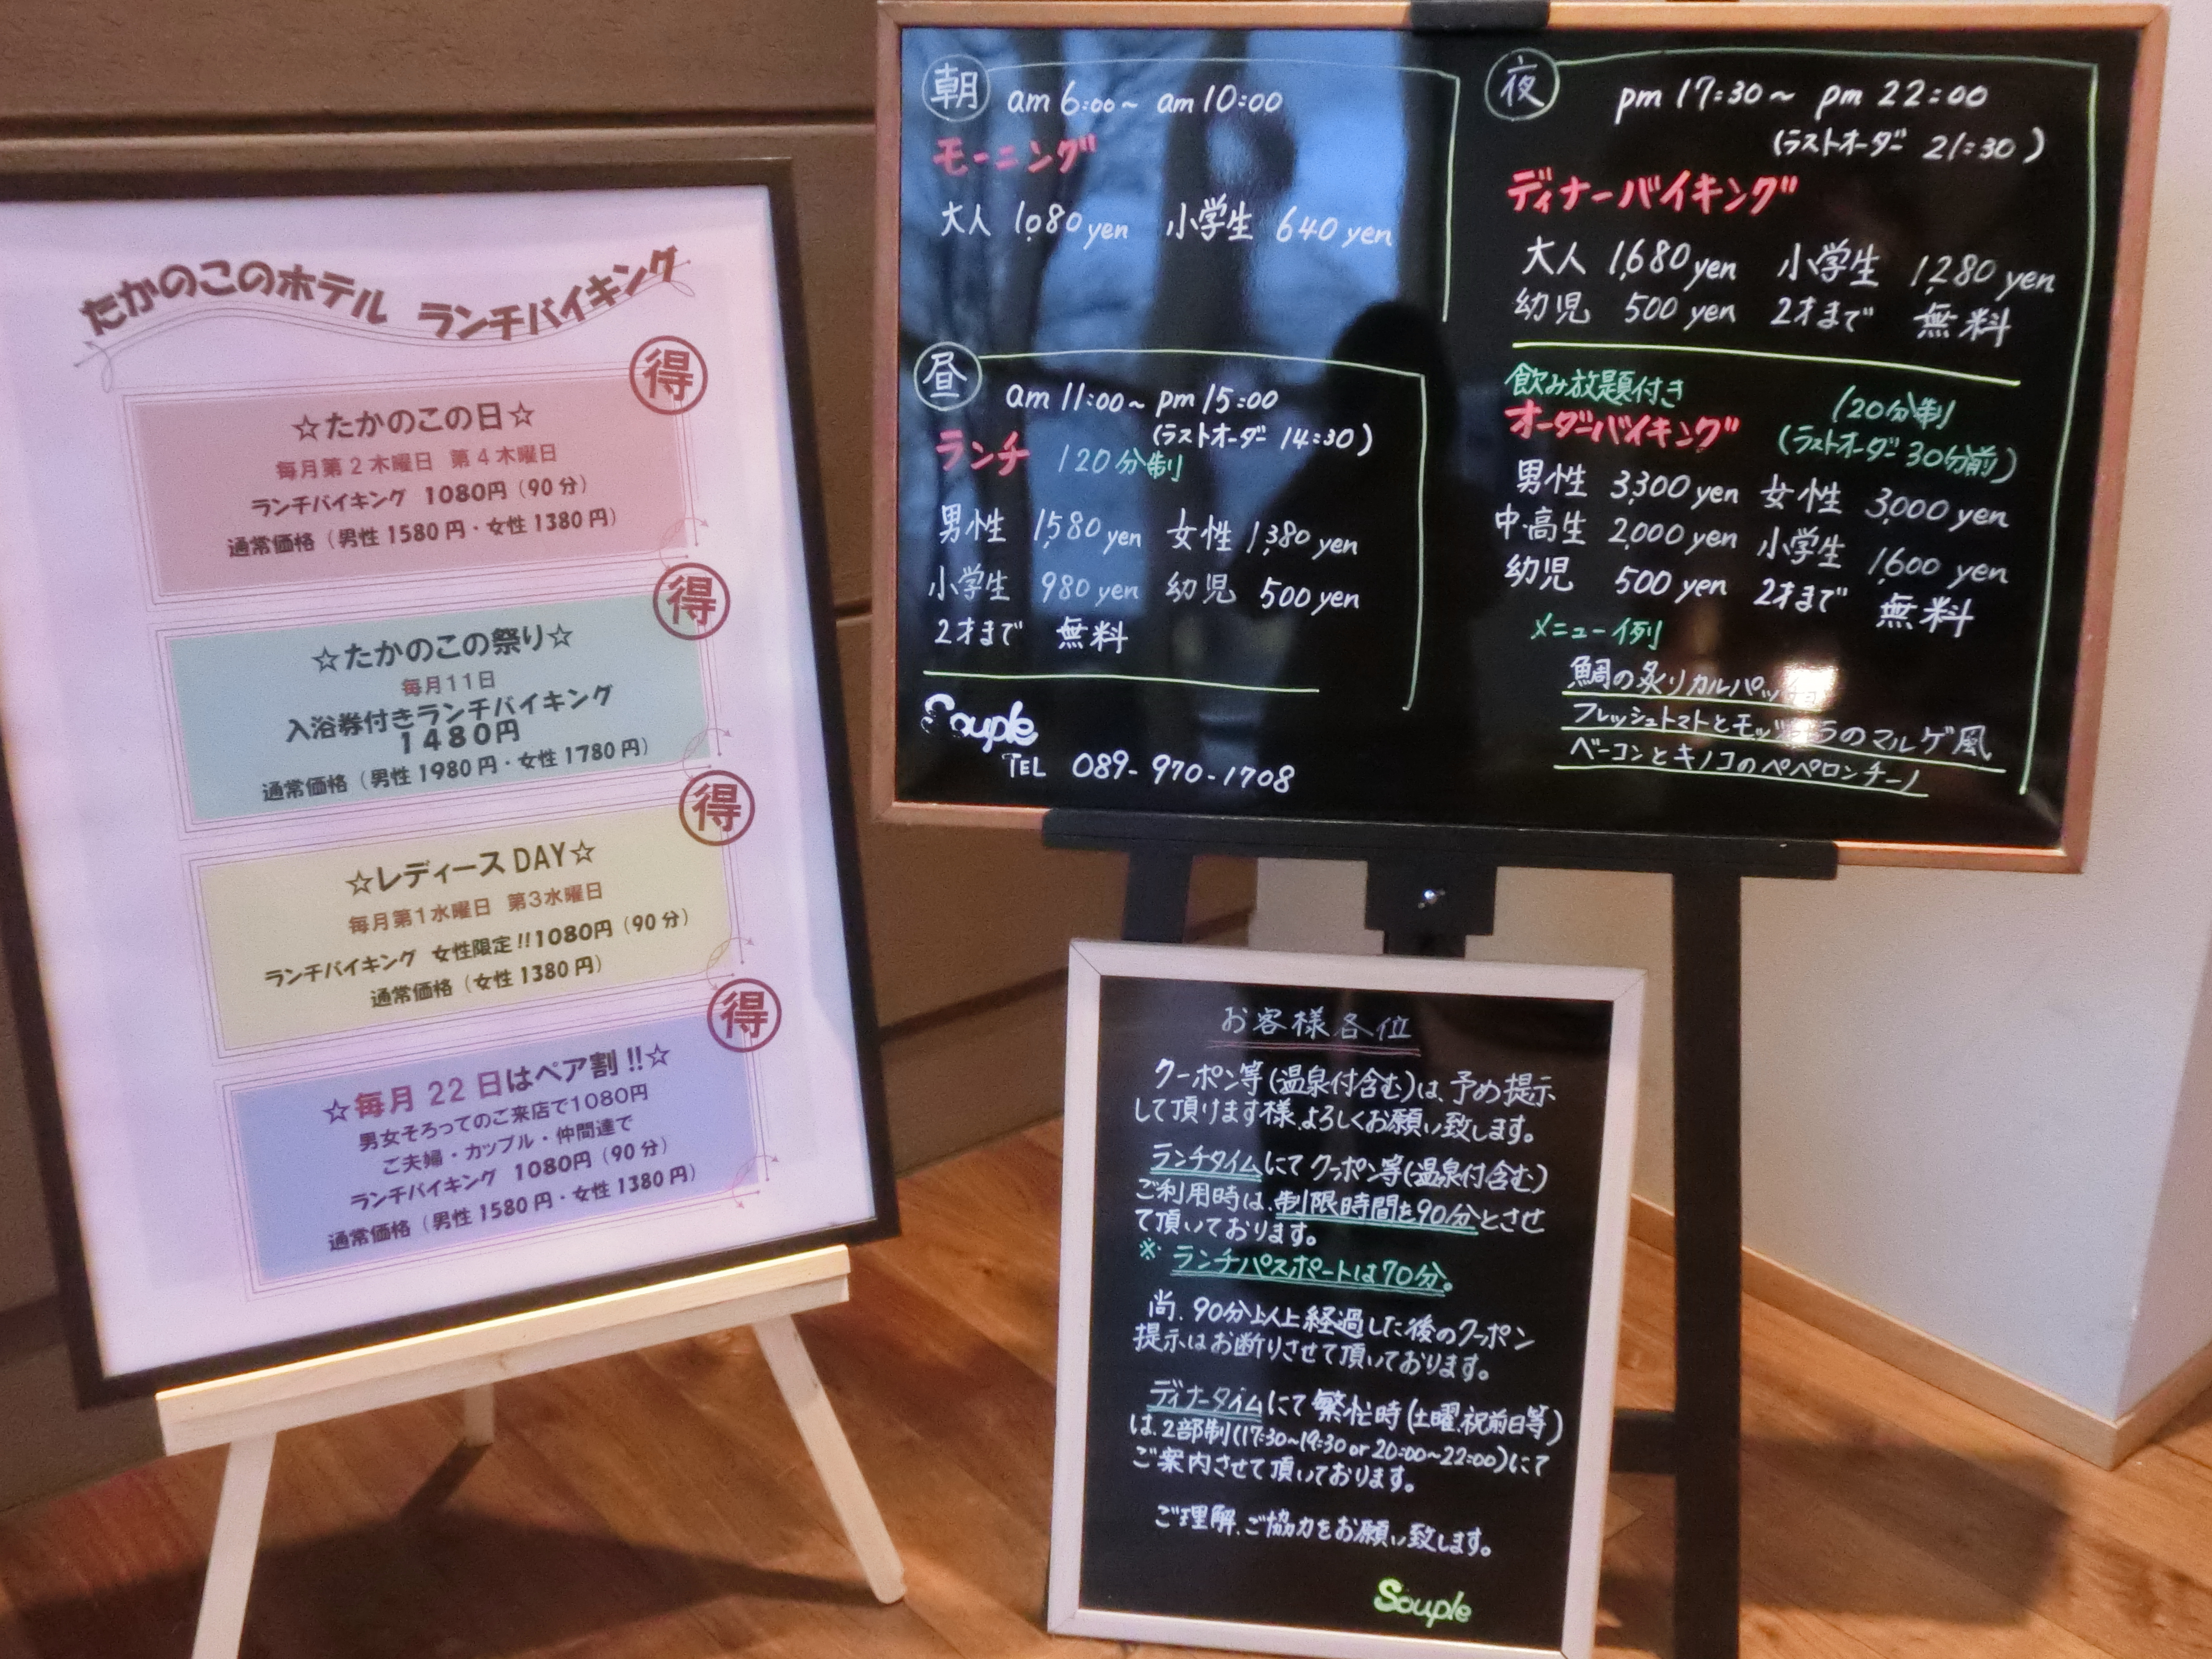 たかのこのホテル ランチバイキング
得
☆たかのこの日☆
毎月第2木曜日 第4木曜日
ランチバイキング 1080円(90分)
通常価格(男性1580円・女性1380円)
得
☆たかのこの祭り☆
毎月11日
入浴券付きランチバイキング
1480円
通常価格(男性1980円・女性1780円)
得
☆レディースDAY☆
毎月第1水曜日 第3水曜日
ランチバイキング 女性限定!!1080円(90分)
通常価格(女性1380円)
得
☆毎月22日はペア割!!☆
男女そろってのご来店で1080円
ご夫婦・カップル・仲間達で
ランチバイキング 1080円(90分)
通常価格(男性1580円・女性1380円)
朝 am 6:00~ am 10:00
モーニング
大人 1,080 yen 小学生 640 yen
昼 am 11:00~ pm 15:00
(ラストオーダー 14:30)
ランチ 120分制
男性 1,580 yen 女性 1,380 yen
小学生 980 yen 幼児 500 yen
2才まで 無料
Souple
TEL 089-970-1708
夜 pm 17:30~ pm 22:00
(ラストオーダー 21:30)
ディナーバイキング
大人 1,680 yen 小学生 1,280 yen
幼児 500 yen 2才まで 無料
飲み放題付き 120分制
オーダーバイキング (ラストオーダー30分前)
男性 3,300 yen 女性 3,000 yen
中・高生 2,000 yen 小学生 1,600 yen
幼児 500 yen 2才まで 無料
メニュー例
鯛の炙りカルパッチョ
フレッシュトマトとモッツァラのマルゲ風
ベーコンとキノコのペペロンチーノ
お客様各位
クーポン等(温泉付含む)は、予め提示
して頂けます様、よろしくお願い致します。
ランチタイムにてクーポン等(温泉付含む)
ご利用時は、制限時間を90分とさせ
て頂いております。
※ランチパスポートは70分。
尚、90分以上経過した後のクーポン
提示はお断りさせて頂いております。
ディナータイムにて繁忙時(土曜、祝前日等)
は、2部制(17:30~19:30 or 20:00~22:00)にて
ご案内させて頂いております。
ご理解、ご協力をお願い致します。
Souple